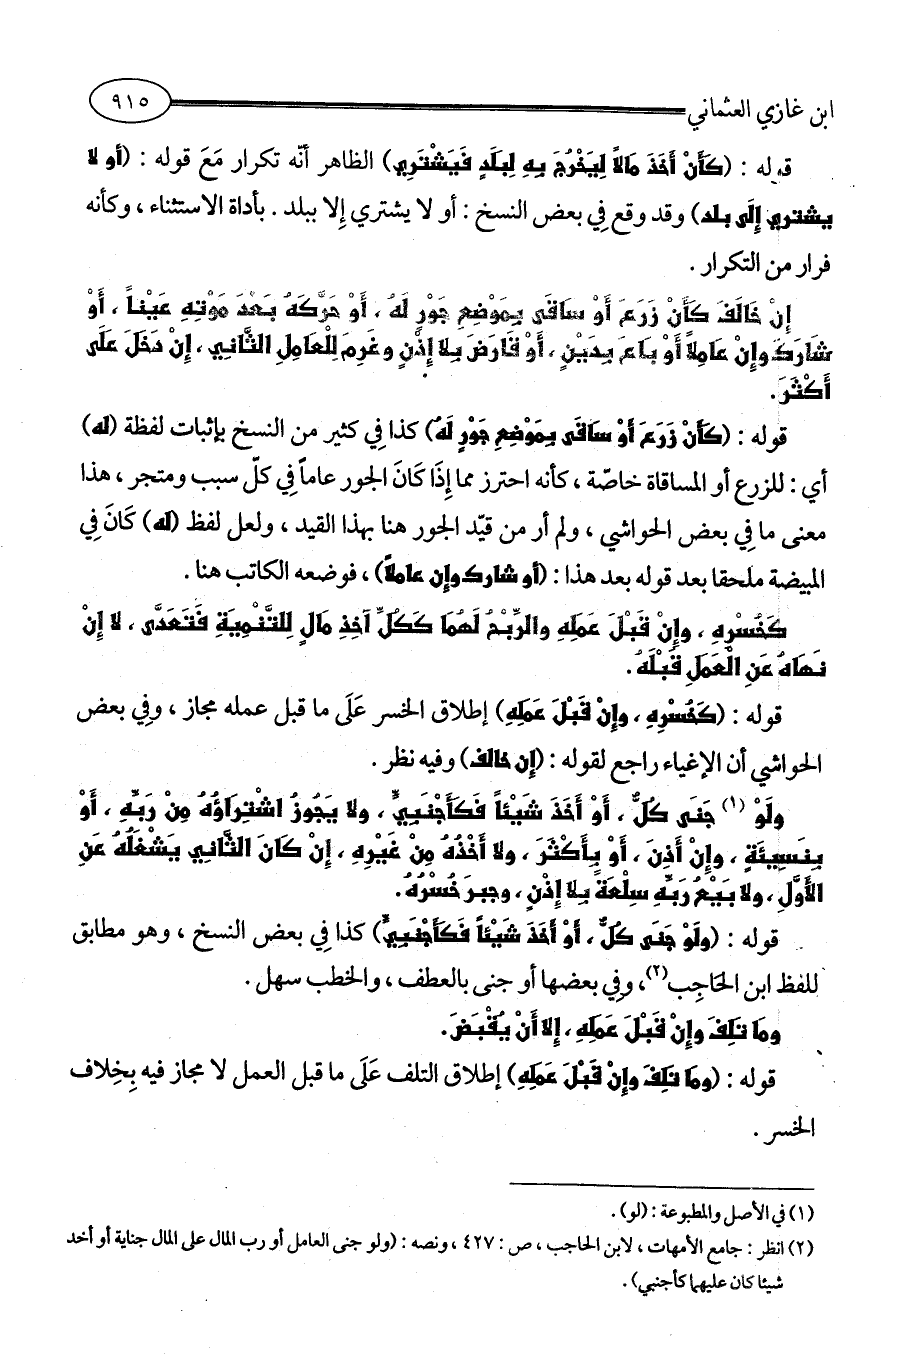 ابن غازي العثماني ٩١٥
قوله : (كَأَنْ أَخَذَ مَالاً لِيَخْرُجَ بِهِ لِبَلَدٍ فَيَشْتَرِي) الظاهر أنّه تكرار مَعَ قوله : (أو لا
يشتري إِلَى بلد) وقد وقع فِي بعض النسخ : أو لا يشتري إلا ببلد . بأداة الاستثناء ، وكأنه
فرار من التكرار .
إِنْ خَالَفَ كَأَنْ زَرَعَ أَوْ سَاقَى بِمَوْضِعِ جَوْرٍ لَهُ ، أَوْ حَرَّكَهُ بَعْدَ مَوْتِهِ عَيْناً ، أَوْ
شَارَكَ وإِنْ عَامِلاً أَوْ بَاعَ بِدَيْنٍ ، أَوْ قَارَضَ بِلا إِذْنٍ وغَرِمَ لِلْعَامِلِ الثَّانِي ، إِنْ دَخَلَ عَلَى
أَكْثَرَ.
قوله : (كَأَنْ زَرَعَ أَوْ سَاقَى بِمَوْضِعِ جَوْرٍ لَهُ) كذا فِي كثير من النسخ بإثبات لفظة (له)
أي : للزرع أو المساقاة خاصّة ، كأنه احترز مما إِذَا كَانَ الجور عاماً فِي كلّ سبب ومتجر ، هذا
معنى ما فِي بعض الحواشي ، ولم أر من قيّد الجور هنا بهذا القيد ، ولعل لفظ (له) كَانَ فِي
المبيضة ملحقا بعد قوله بعد هذا : (أو شارك وإن عاملاً) ، فوضعه الكاتب هنا .
كَخُسْرِهِ ، وإِنْ قَبْلَ عَمَلِهِ والرِّبْحُ لَهُمَا كَكُلِّ آخِذِ مَالٍ لِلتَّنْمِيَةِ فَتَعَدَّى ، لا إِنْ
نَهَاهُ عَنِ الْعَمَلِ قَبْلَهُ.
قوله : (كَخُسْرِهِ ، وإِنْ قَبْلَ عَمَلِهِ) إطلاق الخسر عَلَى ما قبل عمله مجاز ، وفِي بعض
الحواشي أن الإغياء راجع لقوله : (إن خالف) وفيه نظر .
ولَوْ (١) جَنَى كُلٌّ ، أَوْ أَخَذَ شَيْئاً فَكَأَجْنَبِيٍّ ، ولا يَجُوزُ اشْتِرَاؤُهُ مِنْ رَبِّهِ ، أَوْ
بِنَسِيئَةٍ ، وإِنْ أَذِنَ ، أَوْ بِأَكْثَرَ ، ولا أَخْذُهُ مِنْ غَيْرِهِ ، إِنْ كَانَ الثَّانِي يَشْغَلُهُ عَنِ
الأَوَّلِ ، ولا بَيْعُ رَبِّهِ سِلْعَةً بِلا إِذْنٍ ، وجبرَ خُسْرُهُ.
قوله : (ولَوْ جَنَى كُلٌّ ، أَوْ أَخَذَ شَيْئاً فَكَأَجْنَبِيٍّ) كذا فِي بعض النسخ ، وهو مطابق
للفظ ابن الحَاجِب(٢)، وفِي بعضها أو جنى بالعطف ، والخطب سهل .
ومَا تَلِفَ وإِنْ قَبْلَ عَمَلِهِ ، إِلا أَنْ يُقْبَضَ.
قوله : (ومَا تَلِفَ وإِنْ قَبْلَ عَمَلِهِ) إطلاق التلف عَلَى ما قبل العمل لا مجاز فيه بِخِلاف
الخسر .
(١) في الأصل والمطبوعة : (لو) .
(٢) انظر : جامع الأمهات ، لابن الحاجب ، ص : ٤٢٧ ، ونصه : (ولو جنى العامل أو رب المال على المال جناية أو أخذ
شيئا كان عليهما كأجنبي) .